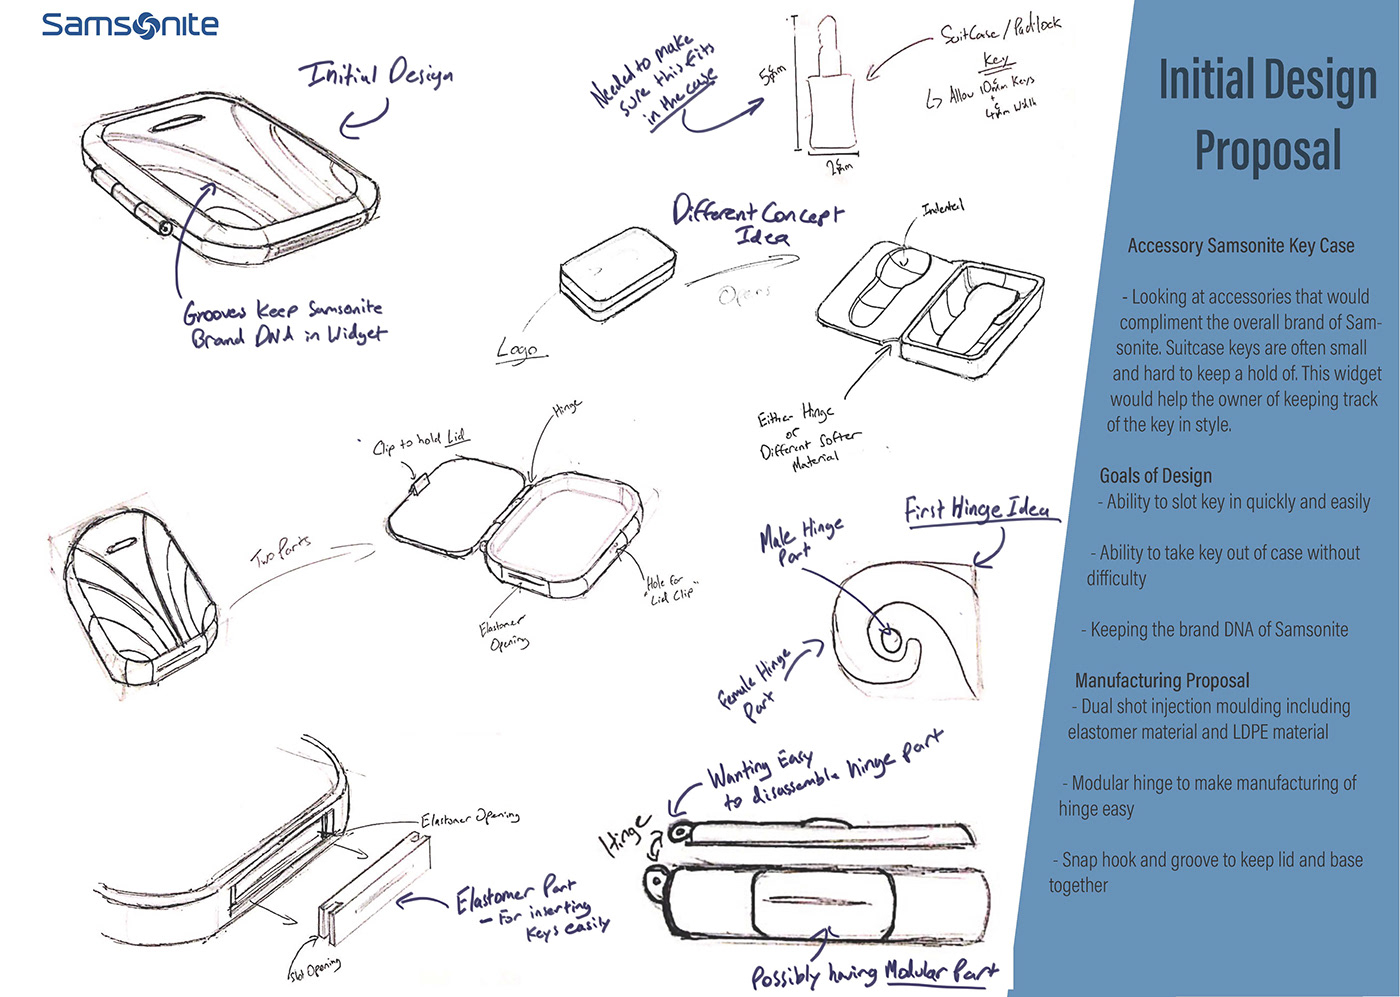 Samsonite
Initial Design
Grooves Keep Samsonite
Brand DNA in Widget
Needed to make
sure this fits
in the case
Suitcase / Padilock
Key
↳ Allow 10cm Keys
+
4cm Width
5cm
2cm
Different Concept
Idea
Logo
Opens
Indented
Either Hinge
or
Different Softer
Material
Two Parts
Clip to hold Lid
Hinge
Elastomer
Opening
Hole for
"Lid Clip"
First Hinge Idea
Male Hinge
Part
Female Hinge
Part
Elastomer Opening
Elastomer Part
– For inserting
Keys easily
Slot Opening
Wanting Easy
to disassemble hinge part
Hinge
Possibly having Modular Part
Initial Design
Proposal
Accessory Samsonite Key Case
- Looking at accessories that would
compliment the overall brand of Sam-
sonite. Suitcase keys are often small
and hard to keep a hold of. This widget
would help the owner of keeping track
of the key in style.
Goals of Design
- Ability to slot key in quickly and easily
- Ability to take key out of case without
difficulty
- Keeping the brand DNA of Samsonite
Manufacturing Proposal
- Dual shot injection moulding including
elastomer material and LDPE material
- Modular hinge to make manufacturing of
hinge easy
- Snap hook and groove to keep lid and base
together